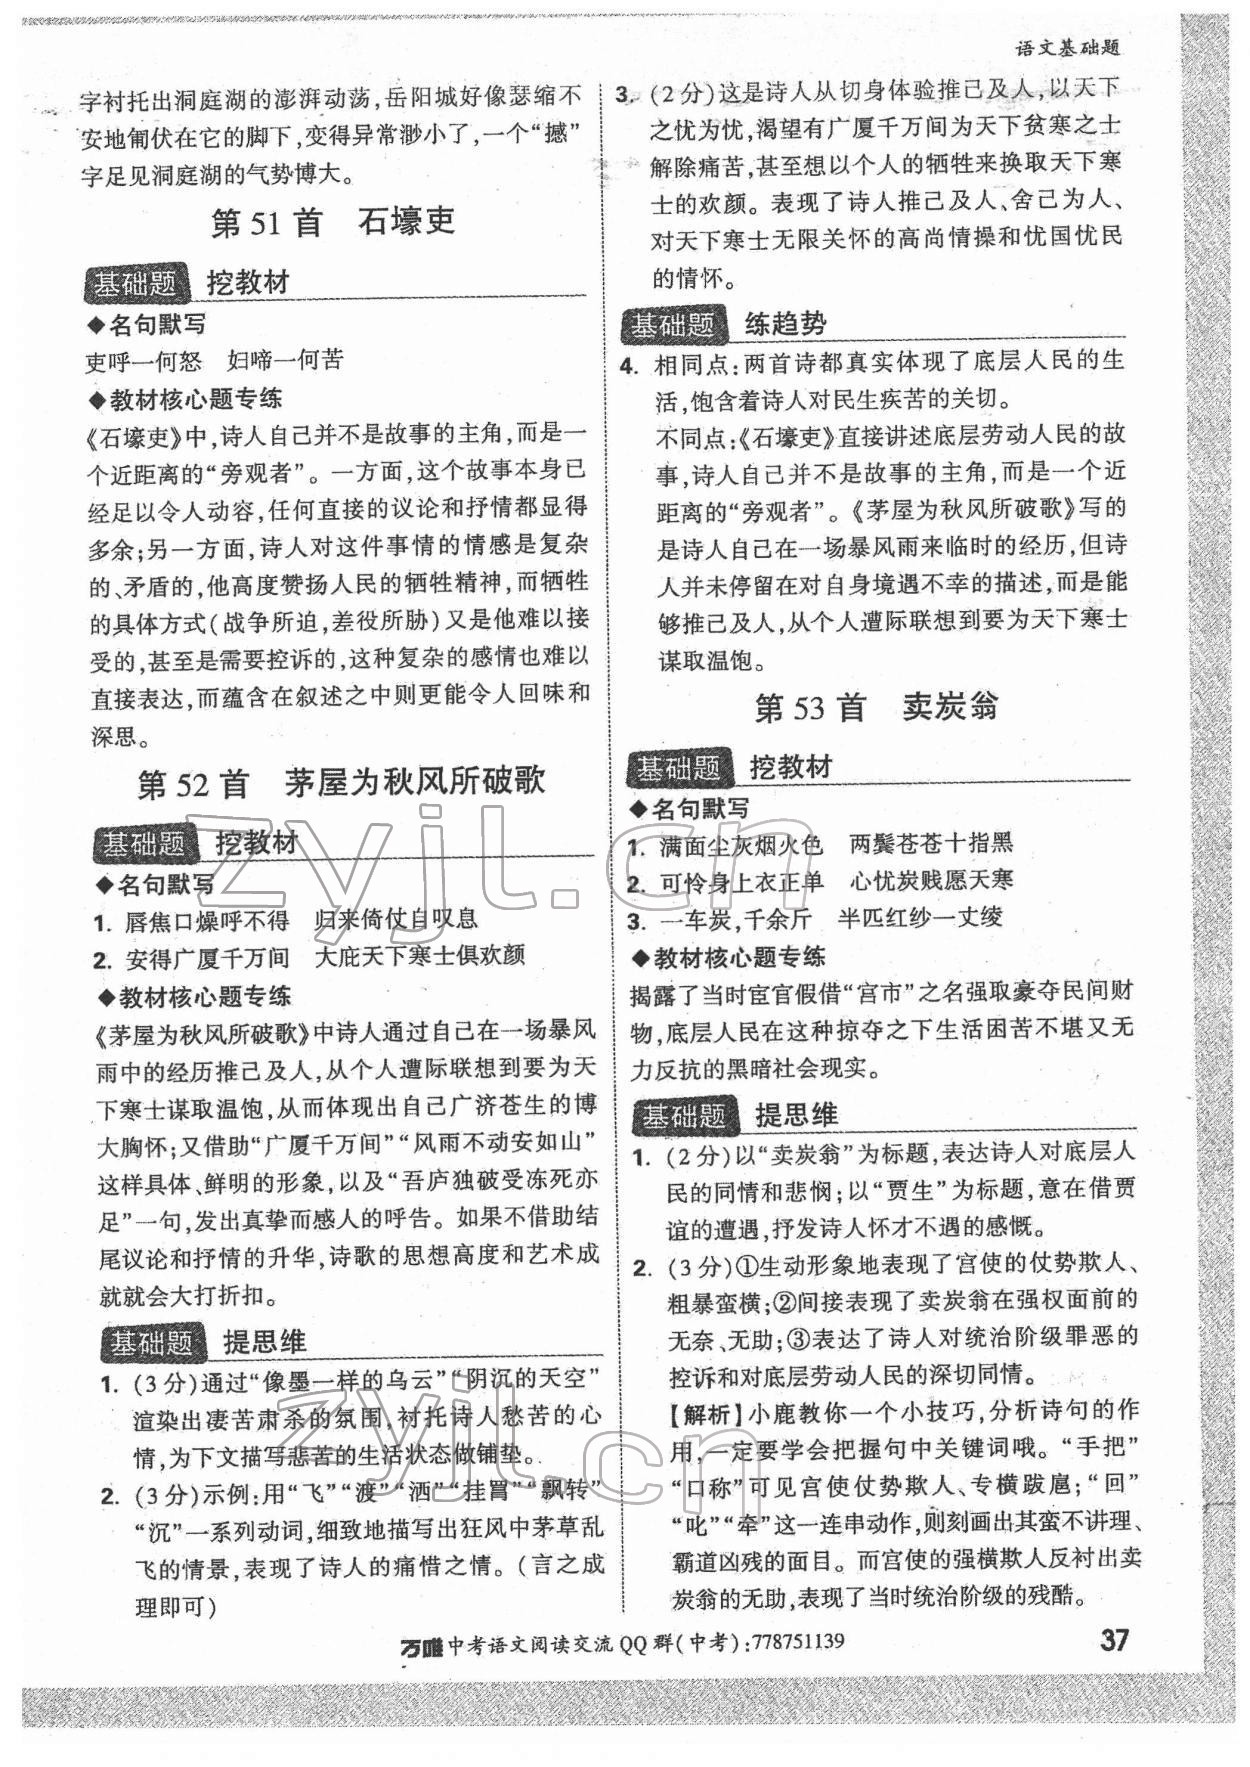 语文基础题
字衬托出洞庭湖的澎湃动荡,岳阳城好像瑟缩不
安地匍伏在它的脚下,变得异常渺小了,一个“撼”
字足见洞庭湖的气势博大。
第 51 首　石壕吏
基础题　挖教材
◆名句默写
吏呼一何怒　妇啼一何苦
◆教材核心题专练
《石壕吏》中,诗人自己并不是故事的主角,而是一
个近距离的“旁观者”。一方面,这个故事本身已
经足以令人动容,任何直接的议论和抒情都显得
多余;另一方面,诗人对这件事情的情感是复杂
的、矛盾的,他高度赞扬人民的牺牲精神,而牺牲
的具体方式(战争所迫,差役所胁)又是他难以接
受的,甚至是需要控诉的,这种复杂的感情也难以
直接表达,而蕴含在叙述之中则更能令人回味和
深思。
第 52 首　茅屋为秋风所破歌
基础题　挖教材
◆名句默写
1. 唇焦口燥呼不得　归来倚仗自叹息
2. 安得广厦千万间　大庇天下寒士俱欢颜
◆教材核心题专练
《茅屋为秋风所破歌》中诗人通过自己在一场暴风
雨中的经历推己及人,从个人遭际联想到要为天
下寒士谋取温饱,从而体现出自己广济苍生的博
大胸怀;又借助“广厦千万间”“风雨不动安如山”
这样具体、鲜明的形象,以及“吾庐独破受冻死亦
足”一句,发出真挚而感人的呼告。如果不借助结
尾议论和抒情的升华,诗歌的思想高度和艺术成
就就会大打折扣。
基础题　提思维
1. (3 分)通过“像墨一样的乌云”“阴沉的天空”
渲染出凄苦肃杀的氛围,衬托诗人愁苦的心
情,为下文描写悲苦的生活状态做铺垫。
2. (3 分)示例:用“飞”“渡”“洒”“挂罥”“飘转”
“沉”一系列动词,细致地描写出狂风中茅草乱
飞的情景,表现了诗人的痛惜之情。(言之成
理即可)
3. (2 分)这是诗人从切身体验推己及人,以天下
之忧为忧,渴望有广厦千万间为天下贫寒之士
解除痛苦,甚至想以个人的牺牲来换取天下寒
士的欢颜。表现了诗人推己及人、舍己为人、
对天下寒士无限关怀的高尚情操和忧国忧民
的情怀。
基础题　练趋势
4. 相同点:两首诗都真实体现了底层人民的生
活,饱含着诗人对民生疾苦的关切。
不同点:《石壕吏》直接讲述底层劳动人民的故
事,诗人自己并不是故事的主角,而是一个近
距离的“旁观者”。《茅屋为秋风所破歌》写的
是诗人自己在一场暴风雨来临时的经历,但诗
人并未停留在对自身境遇不幸的描述,而是能
够推己及人,从个人遭际联想到要为天下寒士
谋取温饱。
第 53 首　卖炭翁
基础题　挖教材
◆名句默写
1. 满面尘灰烟火色　两鬓苍苍十指黑
2. 可怜身上衣正单　心忧炭贱愿天寒
3. 一车炭,千余斤　半匹红纱一丈绫
◆教材核心题专练
揭露了当时宦官假借“宫市”之名强取豪夺民间财
物,底层人民在这种掠夺之下生活困苦不堪又无
力反抗的黑暗社会现实。
基础题　提思维
1. (2 分)以“卖炭翁”为标题,表达诗人对底层人
民的同情和悲悯;以“贾生”为标题,意在借贾
谊的遭遇,抒发诗人怀才不遇的感慨。
2. (3 分)①生动形象地表现了宫使的仗势欺人、
粗暴蛮横;②间接表现了卖炭翁在强权面前的
无奈、无助;③表达了诗人对统治阶级罪恶的
控诉和对底层劳动人民的深切同情。
【解析】小鹿教你一个小技巧,分析诗句的作
用,一定要学会把握句中关键词哦。“手把”
“口称”可见宫使仗势欺人、专横跋扈;“回”
“叱”“牵”这一连串动作,则刻画出其蛮不讲理、
霸道凶残的面目。而宫使的强横欺人反衬出卖
炭翁的无助,表现了当时统治阶级的残酷。
万唯中考语文阅读交流 QQ 群(中考):778751139
37
zyjl.cn
zyjl.cn